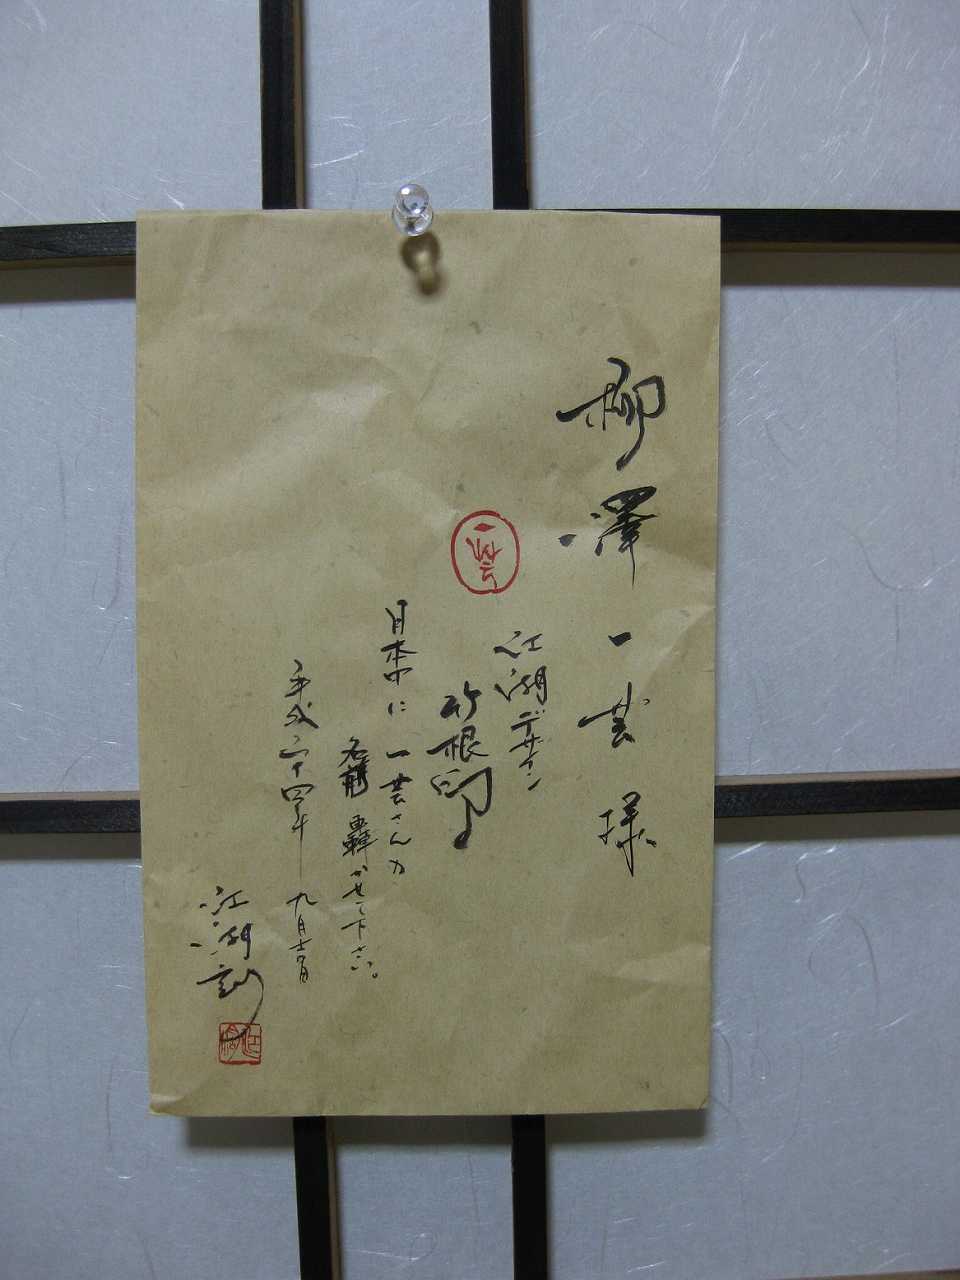 柳澤一芸様
一芸
江湖デザイン
竹根印
日本中に一芸さんの
名前轟かせて下さい。
平成二十四年九月十六日
江湖刻